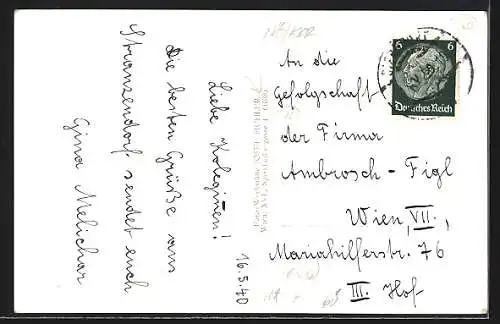 16.5.40
Liebe Kolleginen!
Die besten Grüße aus
Stranzendorf sendet euch
Gina Melichar
An die
Gefolgschaft
der Firma
Ambrosch-Figl
Wien, VII.,
Mariahilferstr. 76
III. Hof
6 6
Deutsches Reich